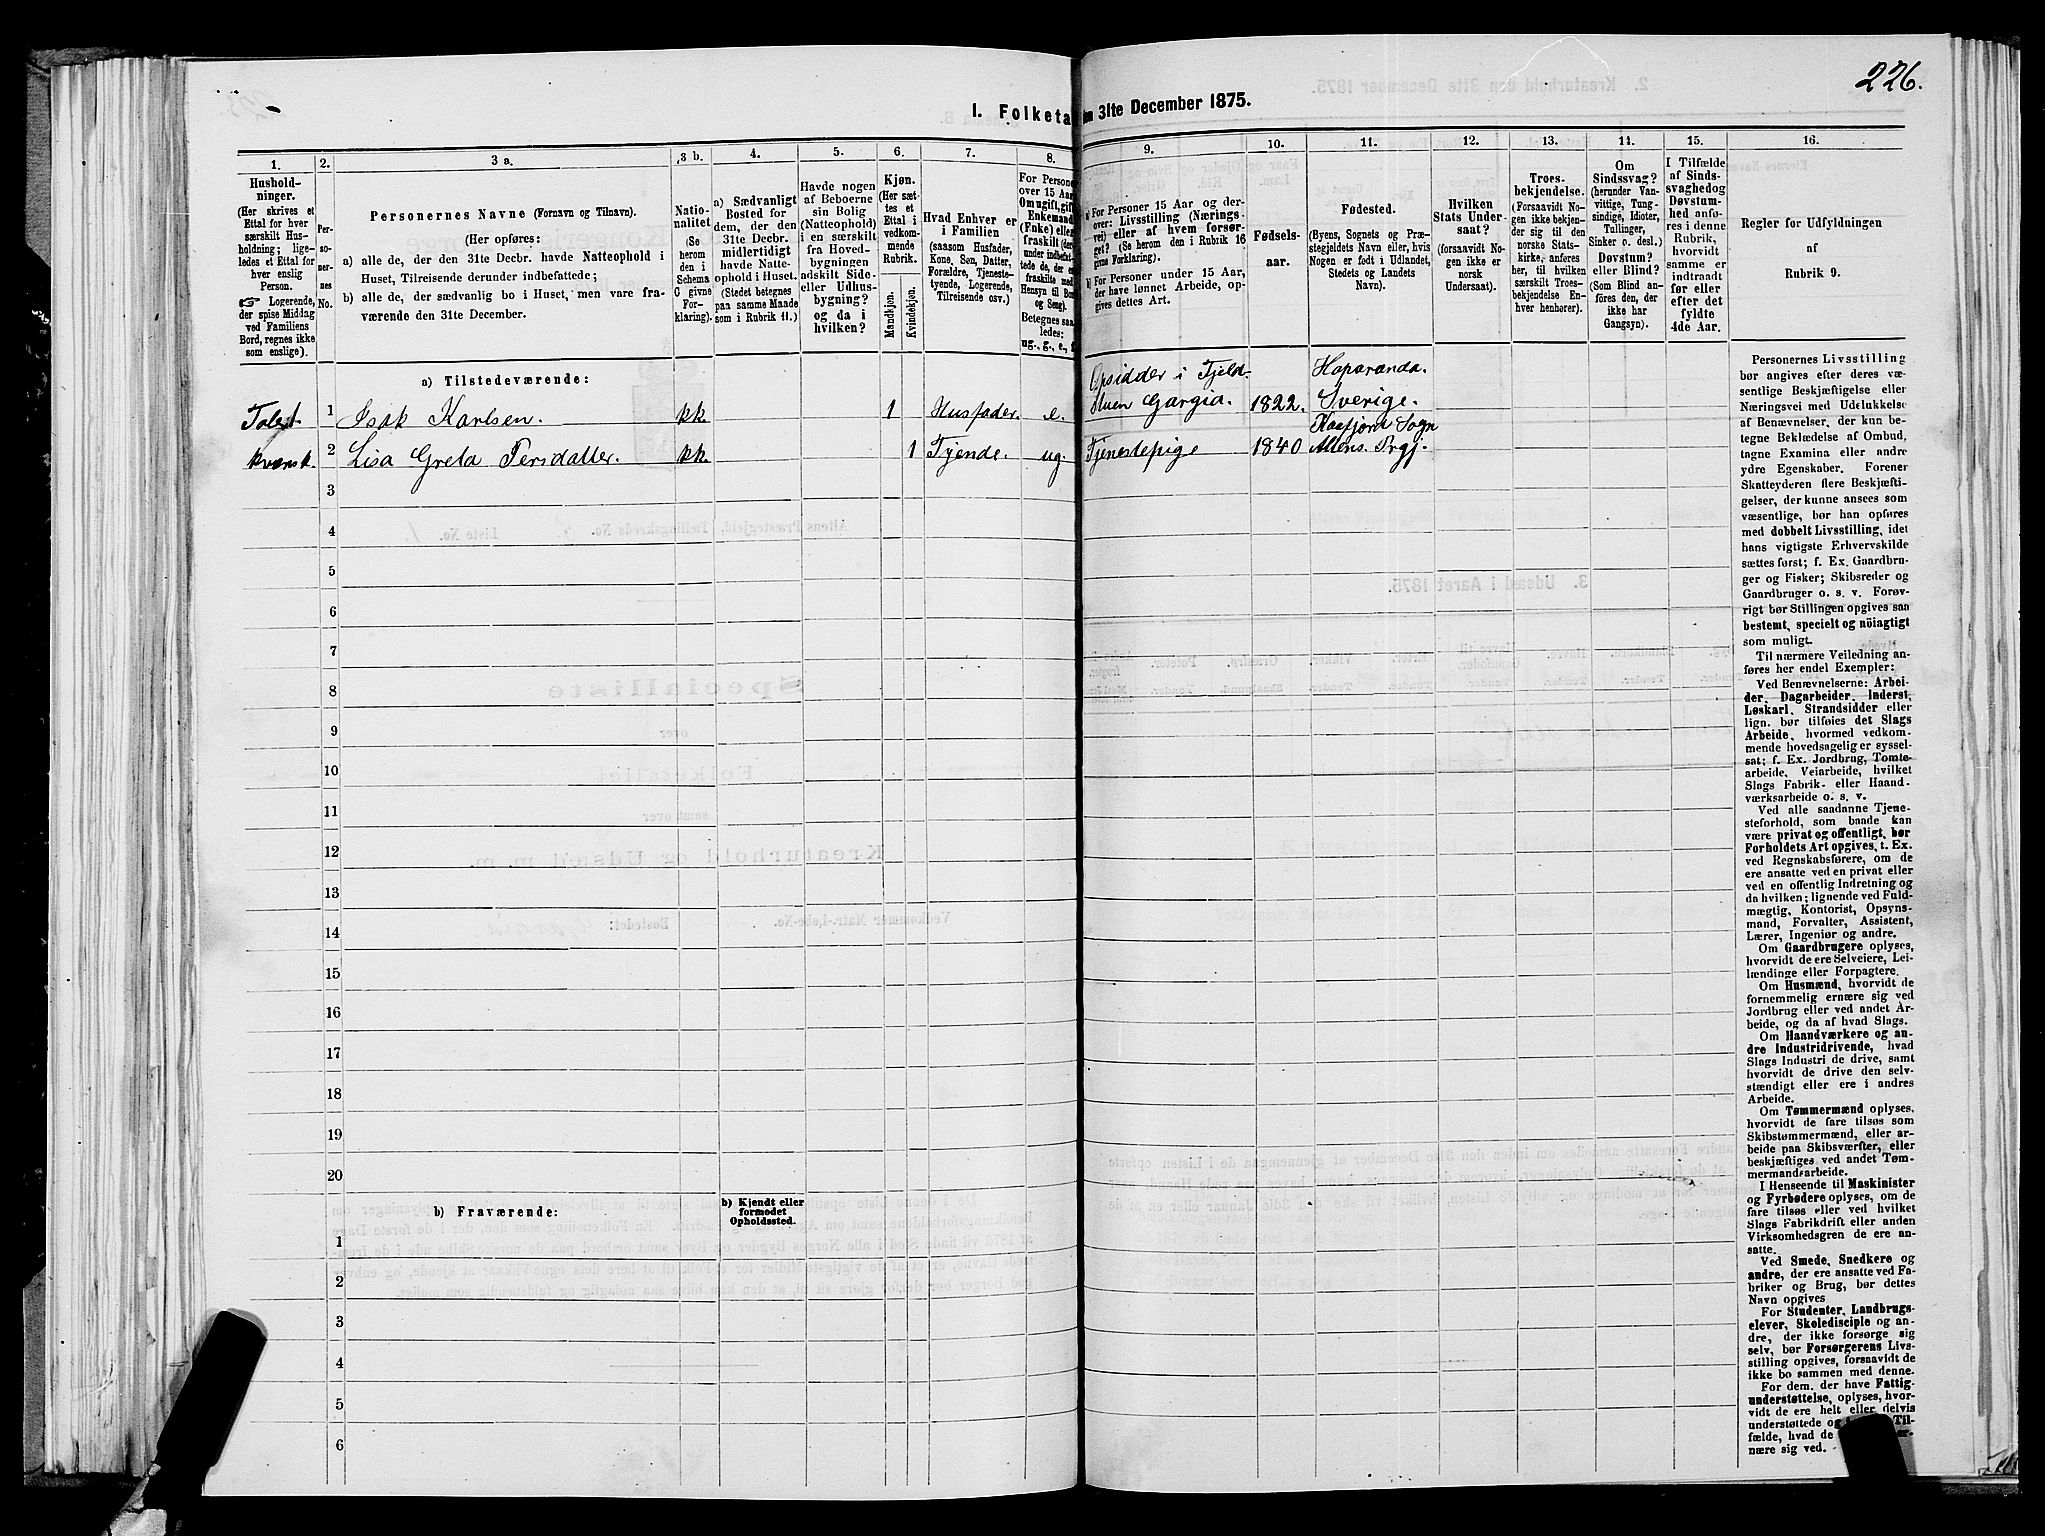 226.
I. Folketa
en 31te December 1875.
1.
2.
3 a.
3 b.
4.
5.
6.
7.
8.
9.
10.
11.
12.
13.
14.
15.
16.
Hushold-
ninger.
(Her skrives et
Ettal for hver
særskilt Hus-
holdning; lige-
ledes et Ettal for
hver enslig
Person.
☞ Logerende,
der spise Middag
ved Familiens
Bord, regnes ikke
som enslige.
Per-
so-
ner-
nes
No.
Personernes Navne (Fornavn og Tilnavn).
(Her opføres:
a) alle de, der den 31te Decbr. havde Natteophold i
Huset, Tilreisende derunder indbefattede;
b) alle de, der sædvanlig bo i Huset, men vare fra-
værende den 31te December.
Natio-
nalitet
(Se
herom
den i
Schema
C givne
For-
klaring).
a) Sædvanligt
Bosted for
dem, der den
31te Decbr.
midlertidigt
havde Natte-
ophold i Huset.
(Stedet betegnes
paa samme Maade
som i Rubrik 11.)
Havde nogen
af Beboerne
sin Bolig
(Natteophold)
i en særskilt
fra Hoved-
bygningen
adskilt Side-
eller Udhus-
bygning?
og da i
hvilken?
Kjøn.
(Her sæt-
tes et
Ettal i
vedkom-
mende
Rubrik.
Mandkjøn.
Kvindekjøn.
Hvad Enhver er
i Familien
(saasom Husfader,
Kone, Søn, Datter,
Forældre, Tjeneste-
tyende, Logerende,
Tilreisende osv.)
For Personer
over 15 Aar:
Om ugift, gift,
Enkemand
(Enke) eller
fraskilt (der-
under indbefat-
tede de, der ere
fraskilte med
Hensyn til Bord
og Seng).
Betegnes saa-
ledes:
ug., g., e., f.
a) For Personer 15 Aar og der-
over: Livsstilling (Nærings-
vei) eller af hvem forsør-
get? (Se herom den i Rubrik 16
givne Forklaring).
b) For Personer under 15 Aar,
der have lønnet Arbeide, op-
gives dettes Art.
Fødsels-
aar.
Fødested.
(Byens, Sognets og Præ-
stegjeldets Navn eller, hvis
Nogen er født i Udlandet,
Stedets og Landets
Navn).
Hvilken
Stats Under-
saat?
(forsaavidt No-
gen ikke er
norsk
Undersaat).
Troes-
bekjendelse.
(Forsaavidt No-
gen ikke bekjen-
der sig til den
norske Stats-
kirke, anføres
her, til hvilken
særskilt Troes-
bekjendelse En-
hver henhører).
Om
Sindssvag?
(herunder Van-
vittige, Tung-
sindige, Idioter,
Tullinger,
Sinker o. desl.)
Døvstum?
eller Blind?
(Som Blind an-
føres den, der
ikke har
Gangsyn).
I Tilfælde
af Sinds-
svaghed og
Døvstum-
hed anfø-
res i denne
Rubrik,
hvorvidt
samme er
indtraadt
før eller
efter det
fyldte
4de Aar.
Regler for Udfyldningen
af
Rubrik 9.
a) Tilstedeværende:
Talest. 1 Isak Karlsen. kk. 1 Husfader. e. Opsidder i Fjeld- stuen Gargia. 1822. Haparanda. Sverige.
kvensk. 2 Lisa Greta Persdatter. kk. 1 Tjende. ug. Tjenestepige 1840 Kaafjord Sogn Altens Prgj.
3
4
5
6
7
8
9
10
11
12
13
14
15
16
17
18
19
20
b) Fraværende:
b) Kjendt eller
formodet
Opholdssted.
1
2
3
4
5
6
Personernes Livsstilling
bør angives efter deres væ-
sentlige Beskjæftigelse eller
Næringsvei med Udelukkelse
af Benævnelser, der kun be-
tegne Beklædelse af Ombud,
tagne Examina eller andre
ydre Egenskaber. Forener
Skatteyderen flere Beskjæfti-
gelser, der kunne ansees som
væsentlige, bør han opføres
med dobbelt Livsstilling, idet
hans vigtigste Erhvervskilde
sættes først; f. Ex. Gaardbru-
ger og Fisker; Skibsreder og
Gaardbruger o. s. v. Forøv-
rigt bør Stillingen opgives saa
bestemt, specielt og nöiagtigt
som muligt.
Til nærmere Veiledning an-
føres her endel Exempler:
Ved Benævnelserne: Arbei-
der, Dagarbeider, Inderst,
Løskarl, Strandsidder eller
lign. bør tilføies det Slags
Arbeide, hvormed vedkom-
mende hovedsagelig er syssel-
sat; f. Ex. Jordbrug, Tomte-
arbeide, Veiarbeide, hvilket
Slags Fabrik- eller Haand-
værksarbeide o. s. v.
Ved alle saadanne Tjene-
steforhold, som baade kan
være privat og offentligt, bør
Forholdets Art opgives, t. Ex.
ved Regnskabsførere, om de
ere ansatte ved en privat eller
ved en offentlig Indretning og
da hvilken; lignende ved Fuld-
mægtig, Kontorist, Opsyns-
mand, Forvalter, Assistent,
Lærer, Ingeniør og andre.
Om Gaardbrugere oplyses,
hvorvidt de ere Selveiere, Lei-
lændinge eller Forpagtere.
Om Husmænd, hvorvidt de
fornemmelig ernære sig ved
Jordbrug eller ved andet Ar-
beide, og da af hvad Slags.
Om Haandværkere og an-
dre Industridrivende, hvad
Slags Industri de drive, samt
hvorvidt de drive den selv-
stændigt eller ere i andres
Arbeide.
Om Tømmermænd oplyses,
hvorvidt de fare tilsøs som
Skibstømmermænd, eller ar-
beide paa Skibsværfter, eller
beskjæftiges ved andet Tøm-
mermandsarbeide.
I Henseende til Maskinister
og Fyrbødere oplyses, om de
fare tilsøs eller ved hvilket
Slags Fabrikdrift eller anden
Virksomhedsgren de ere an-
satte.
Ved Smede, Snedkere og
andre, der ere ansatte ved Fa-
briker og Brug, bør dettes
Navn opgives
For Studenter, Landbrugs-
elever, Skoledisciple og an-
dre, der ikke forsørge sig
selv, bør Forsørgerens Livs-
stilling opgives, forsaavidt de
ikke bo sammen med denne.
For dem, der have Fattig-
understøttelse, oplyses, hvor-
vidt de ere helt eller delvis
understøttede og Til-
fælde, hvad de er-
nære sig ved.